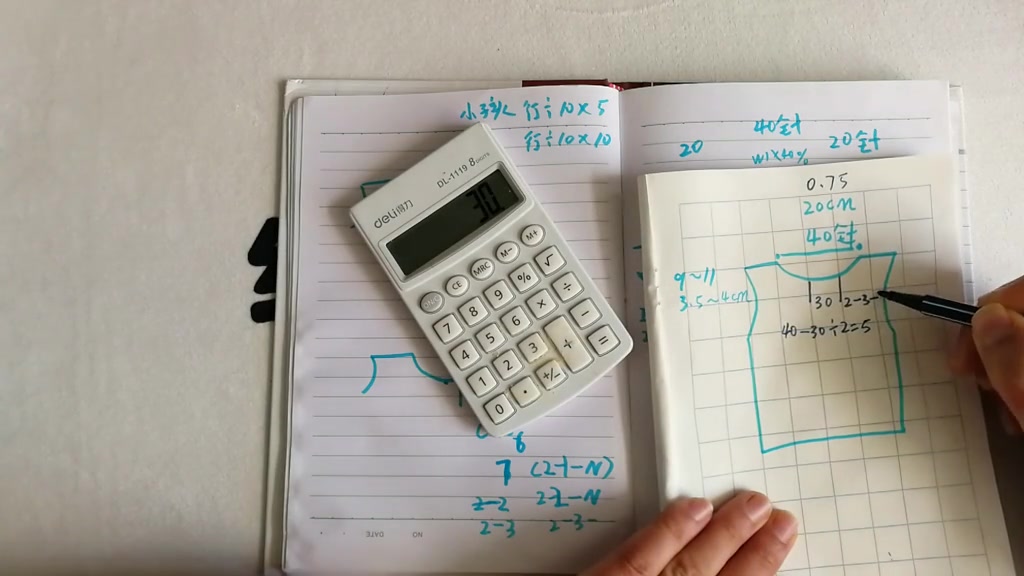 小孩 行÷10×5
行÷10×10
deli得力
DL-1119 8 DIGITS
30
CE
MRC
M-
M+
7 8 9 % √
4 5 6 × ÷
1 2 3 + −
0 · +/- =
7 (2-1-N)
2-2 22-N
2-3 2-3-
DATE NO
40针
20 20针
W1×40%
0.75
20cm
40针
9~11
3.5~4cm
30 2-3-
40-30÷2=5